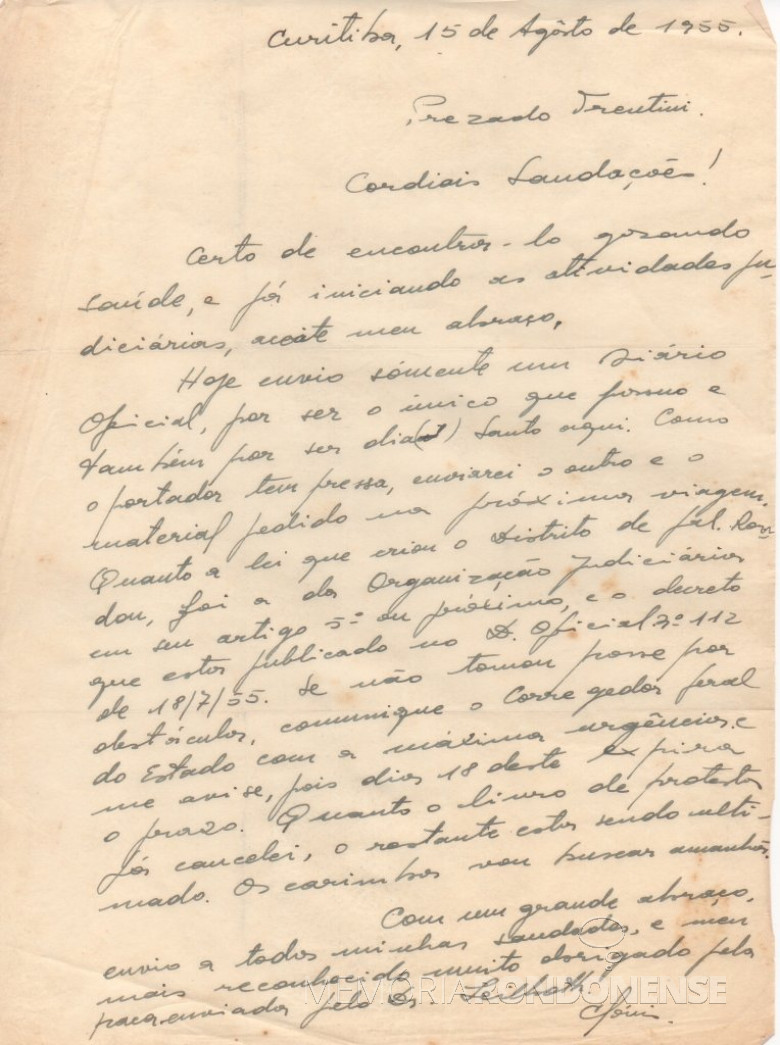 Curitiba, 15 de Agôsto de 1955.
Prezado Trentini.
Cordiais Saudações!
Certo de encontra-lo gosando
saúde, e já iniciando as atividades ju-
diciárias, aceite meu abraço.
Hoje envio sómente um Diário
Oficial, por ser o único que possuo e
também por ser dia Santo aqui. Como
o portador tem pressa, enviarei o outro e o
material pedido na próxima viagem.
Quanto a lei que criou o Distrito de Gal. Ron
don, foi a da Organização Judiciária
em seu artigo 5º ou próximo, e o decreto
que está publicado no D. Oficial nº 112
de 18/7/55. Se não tomou posse por
obstáculos, comunique o Corregedor Geral
do Estado com a máxima urgência, e
me avise, pois dia 18 deste expira
o prazo. Quanto o livro de protestos
já cancelei, o restante esta sendo ulti-
mado. Os carimbos vou buscar amanhã.
Com um grande abraço,
envio a todos minhas saudades, e meu
mais reconhecido muito obrigado pela
enviada pelo Dr.
MEMÓRIA RONDONENSE